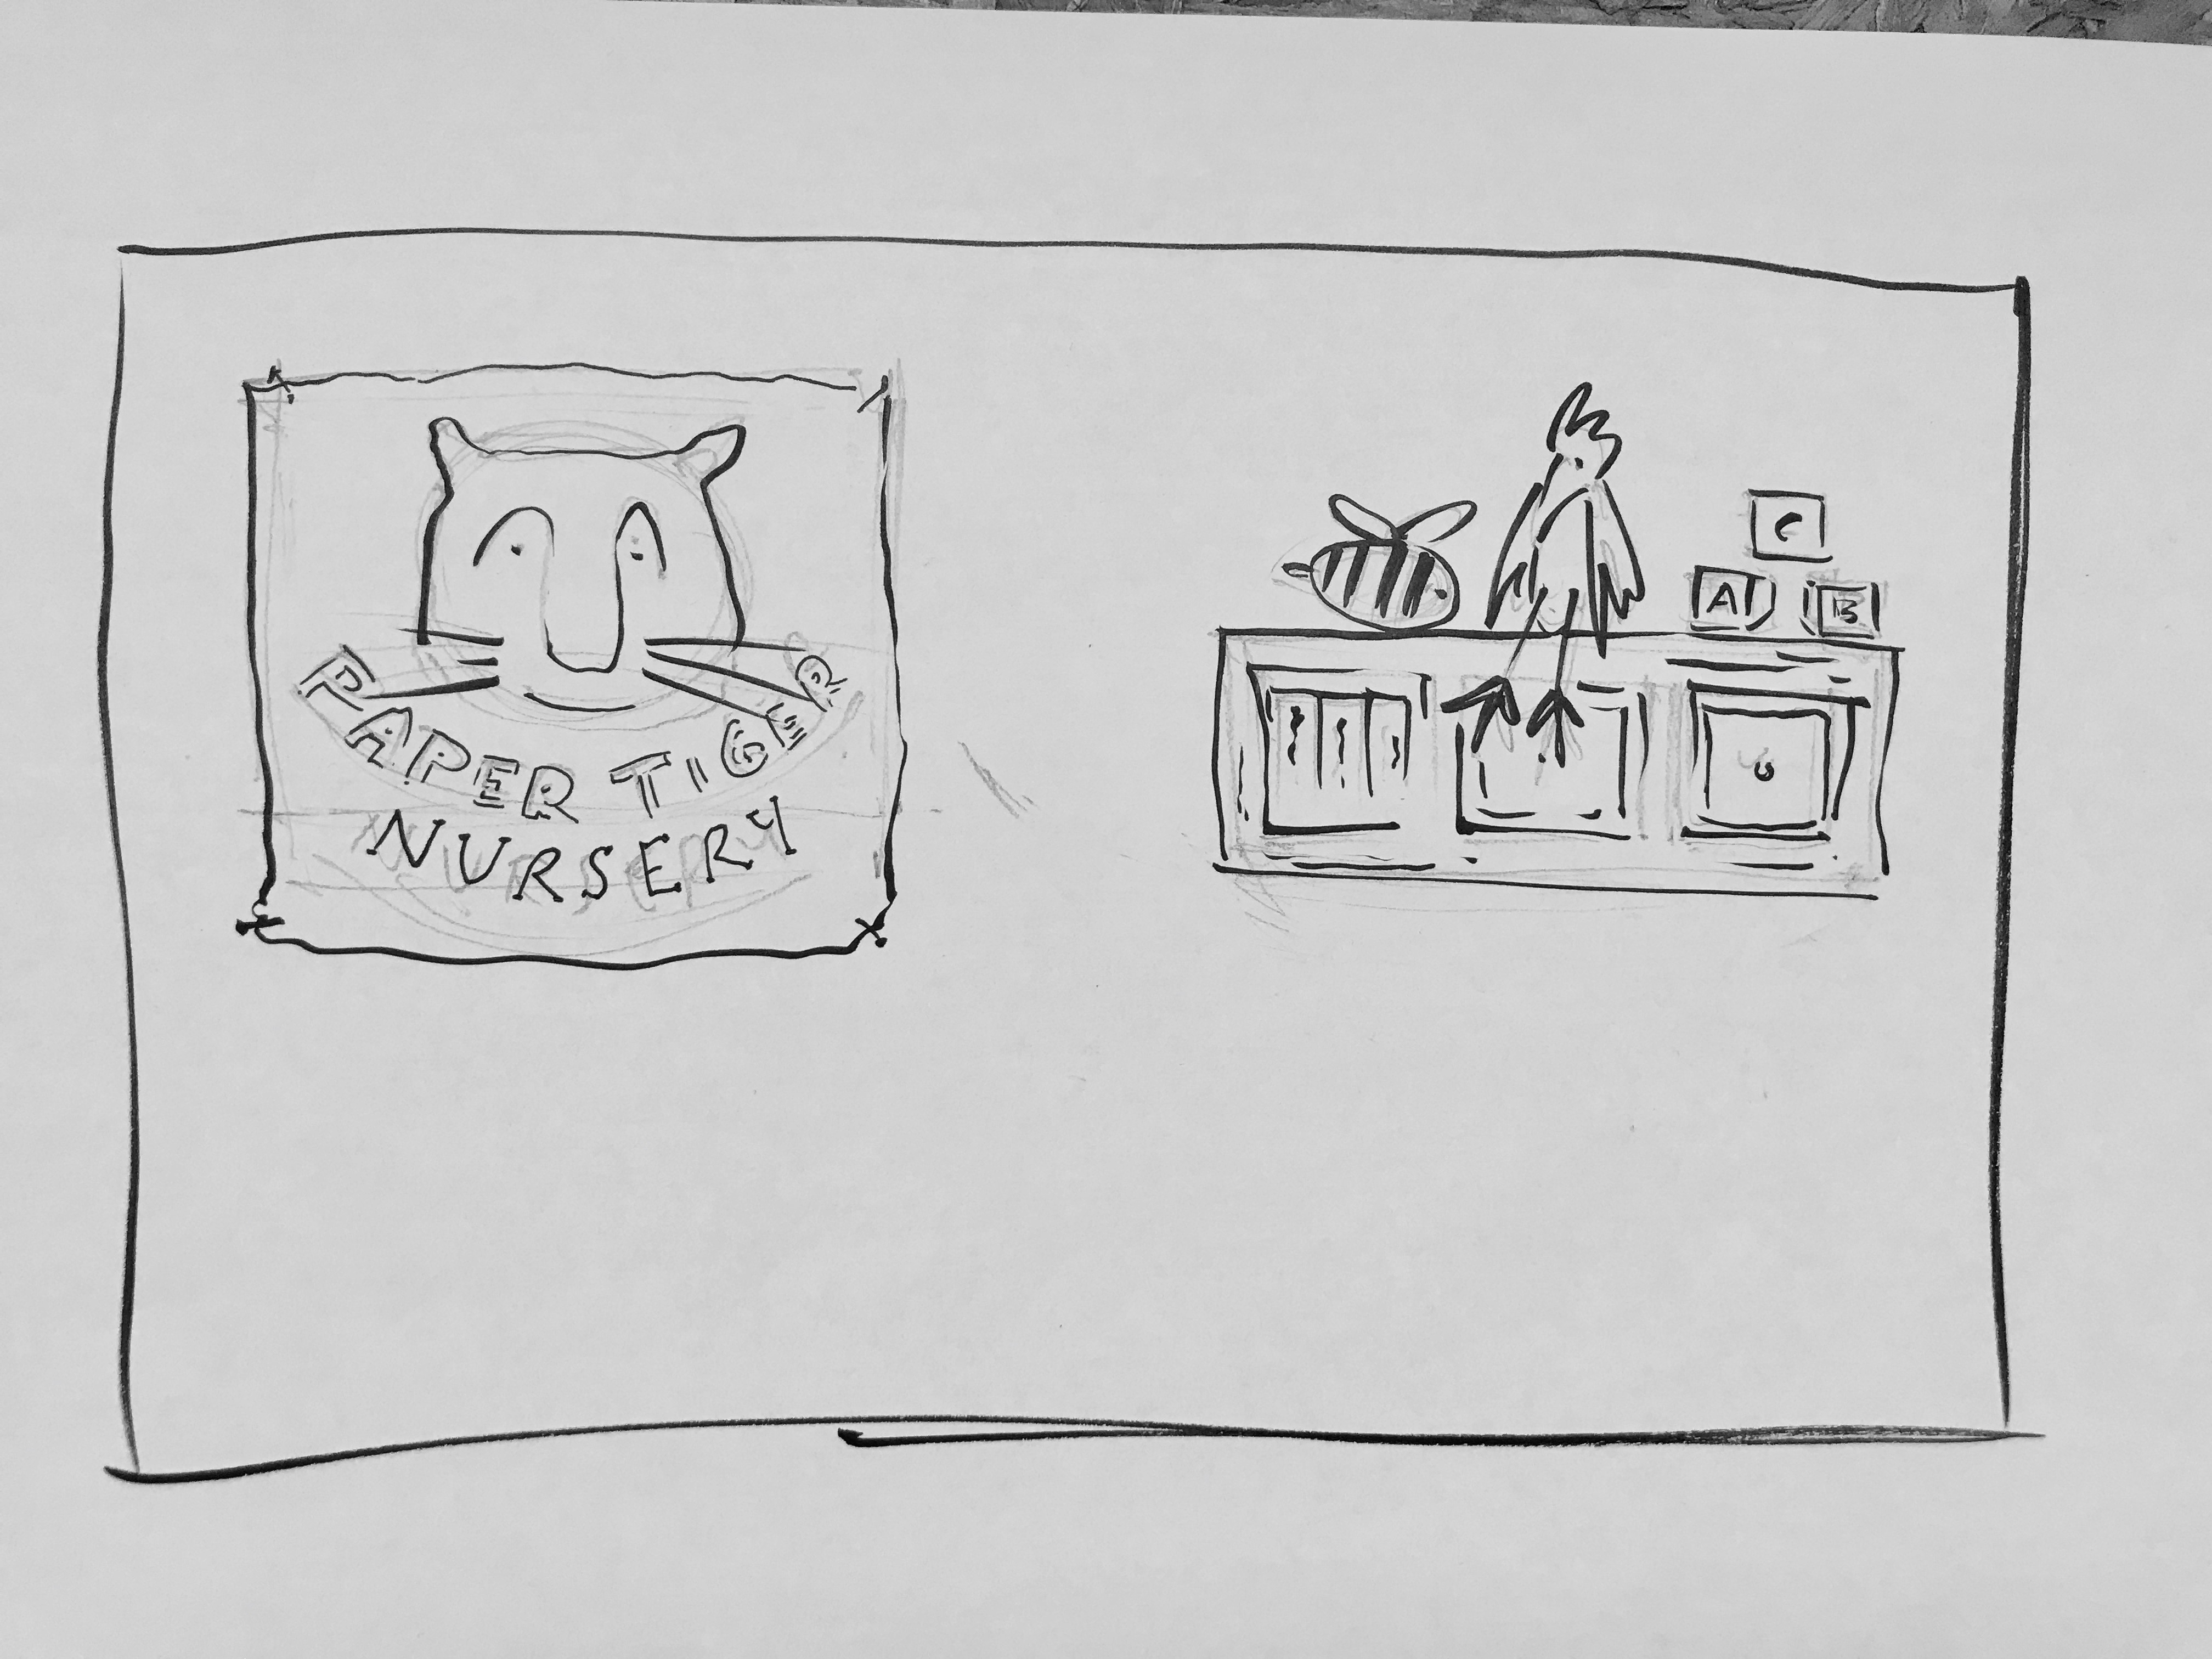 PAPER TIGER
NURSERY
C
A B